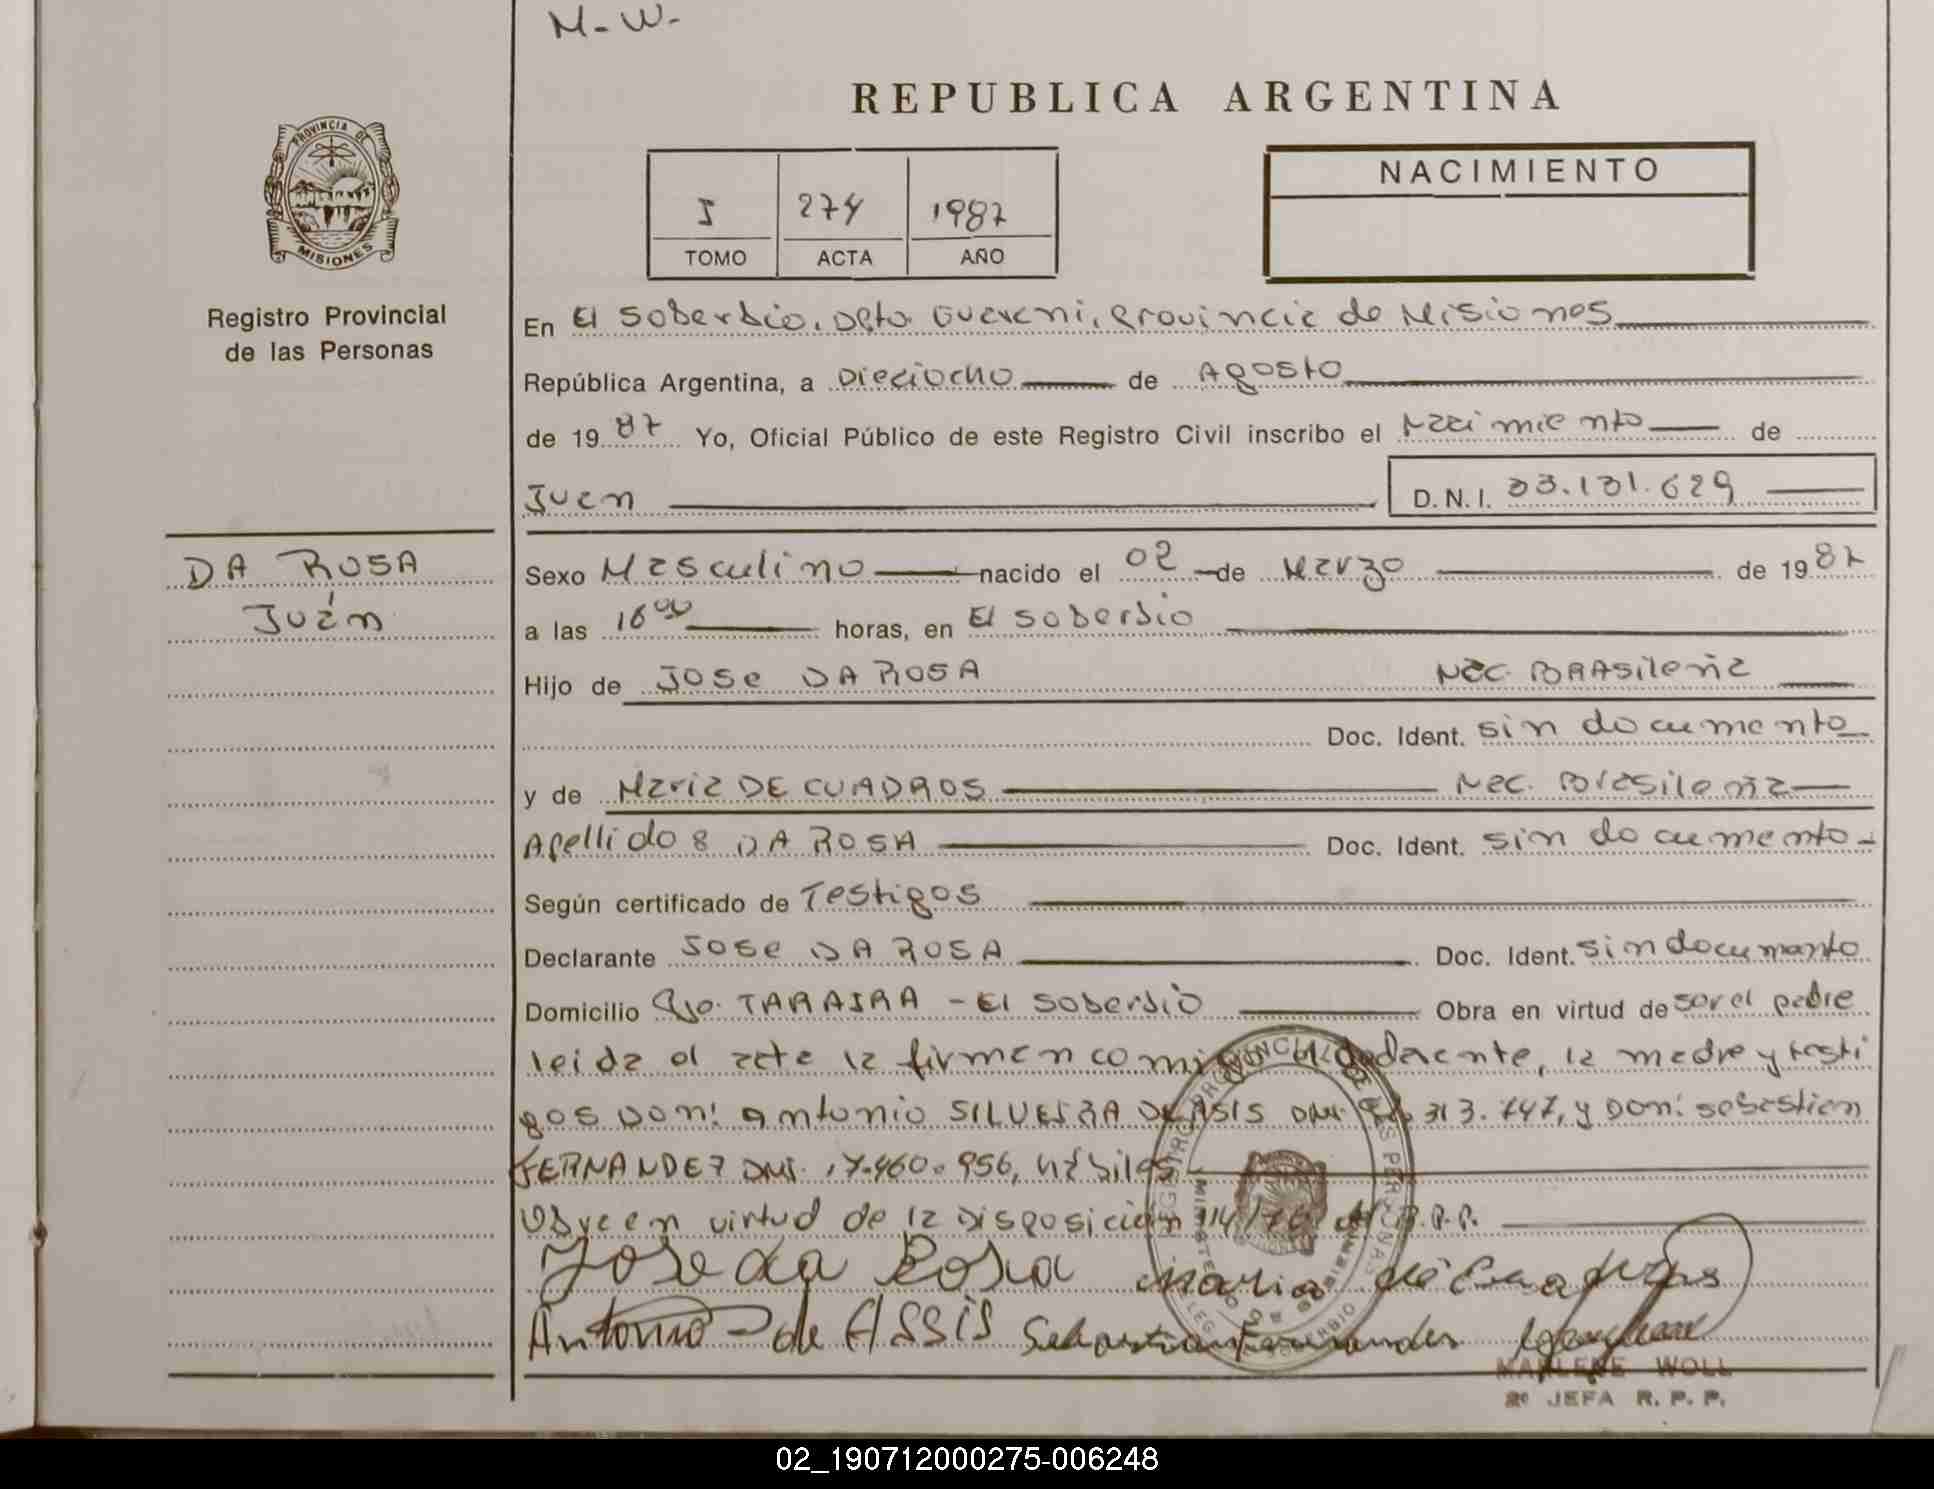 M.W.
REPUBLICA ARGENTINA
PROVINCIA DE
MISIONES
Registro Provincial
de las Personas
I 274 1987
TOMO ACTA AÑO
NACIMIENTO
En El Soberbio, Dpto. Guarani, Provincia de Misiones
República Argentina, a Dieciocho de Agosto
de 1987 Yo, Oficial Público de este Registro Civil inscribo el Nacimiento de
Juan D.N.I. 33.131.629
DA ROSA
Juán
Sexo Masculino nacido el 02 de Marzo de 1987
a las 16 00 horas, en El Soberbio
Hijo de JOSe DA ROSA Nac. BRAsileña
Doc. Ident. sin documento
y de Maria DE CUADROS Nac. Brasileña
Apellido: DA ROSA Doc. Ident. sin documento
Según certificado de Testigos
Declarante JOSe DA ROSA Doc. Ident. sin documento
Domicilio TARAIRA - El Soberbio Obra en virtud de ser el padre
leida el acta la firman conmigo el declarante, la madre y testi
gos Don: Antonio SILVEIRA DE ASIS DNI. 313.747, y Don: Sebastian
FERNANDEZ DNI. 17.460.956, hábiles
en virtud de la Disposición R.P.P.
Jose da Rosa Maria de Cuadros
Antonio de ASSIS Sebastian Fernandes
MARLENE WOLL
2º JEFA R.P.P.
02_190712000275-006248